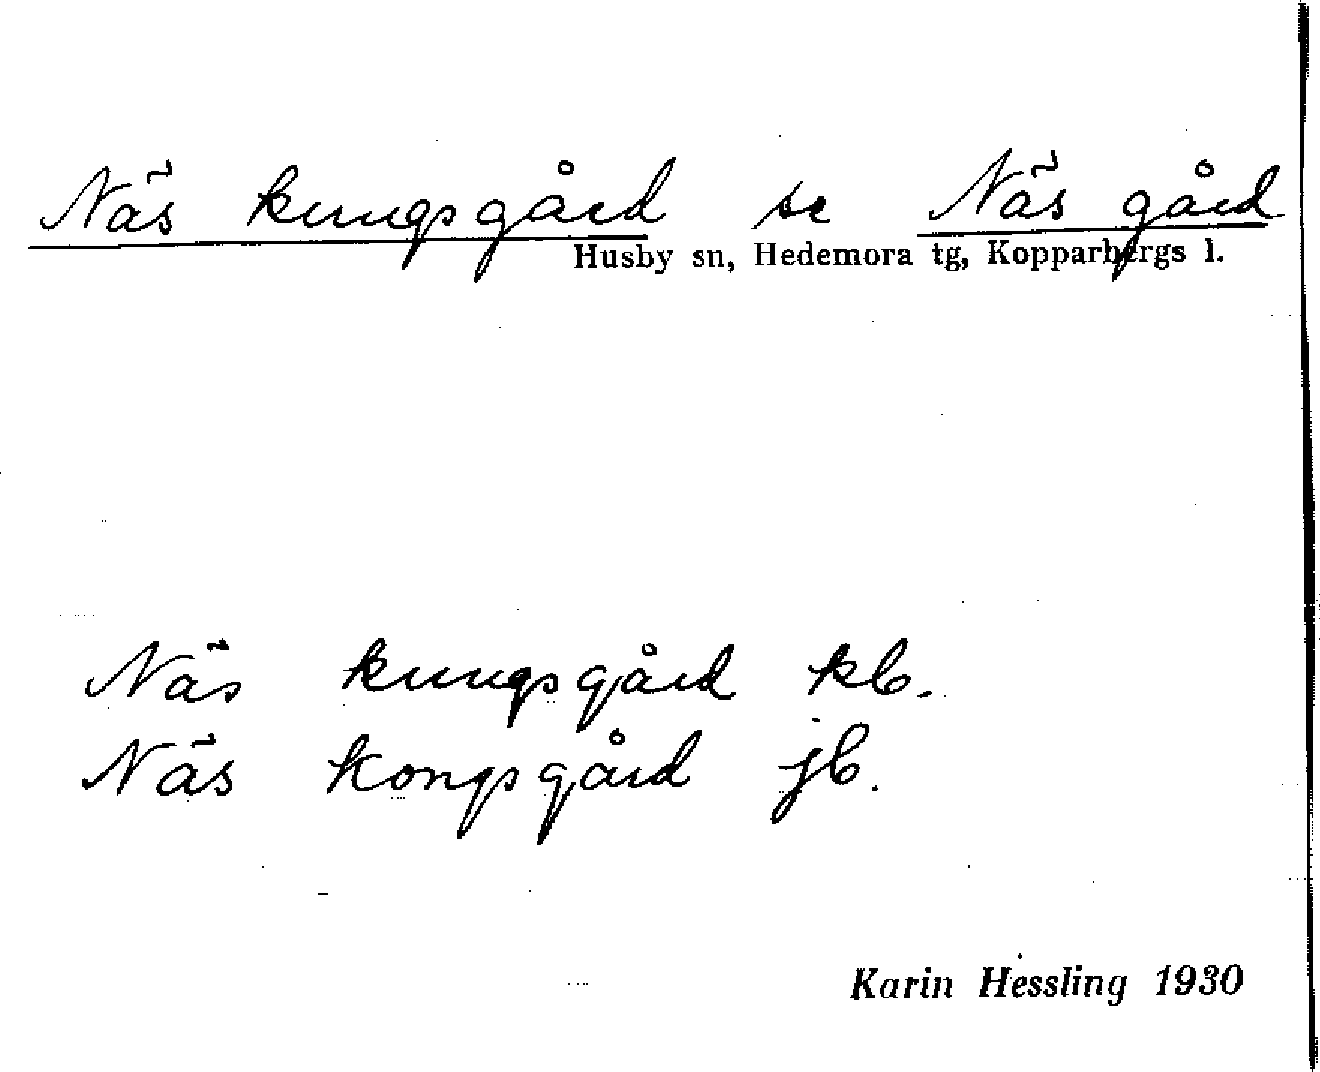 Näs kungsgård se Näs gård
Husby sn, Hedemora tg, Kopparbergs l.
Näs kungsgård kb.
Näs kongsgård jb.
Karin Hessling 1930